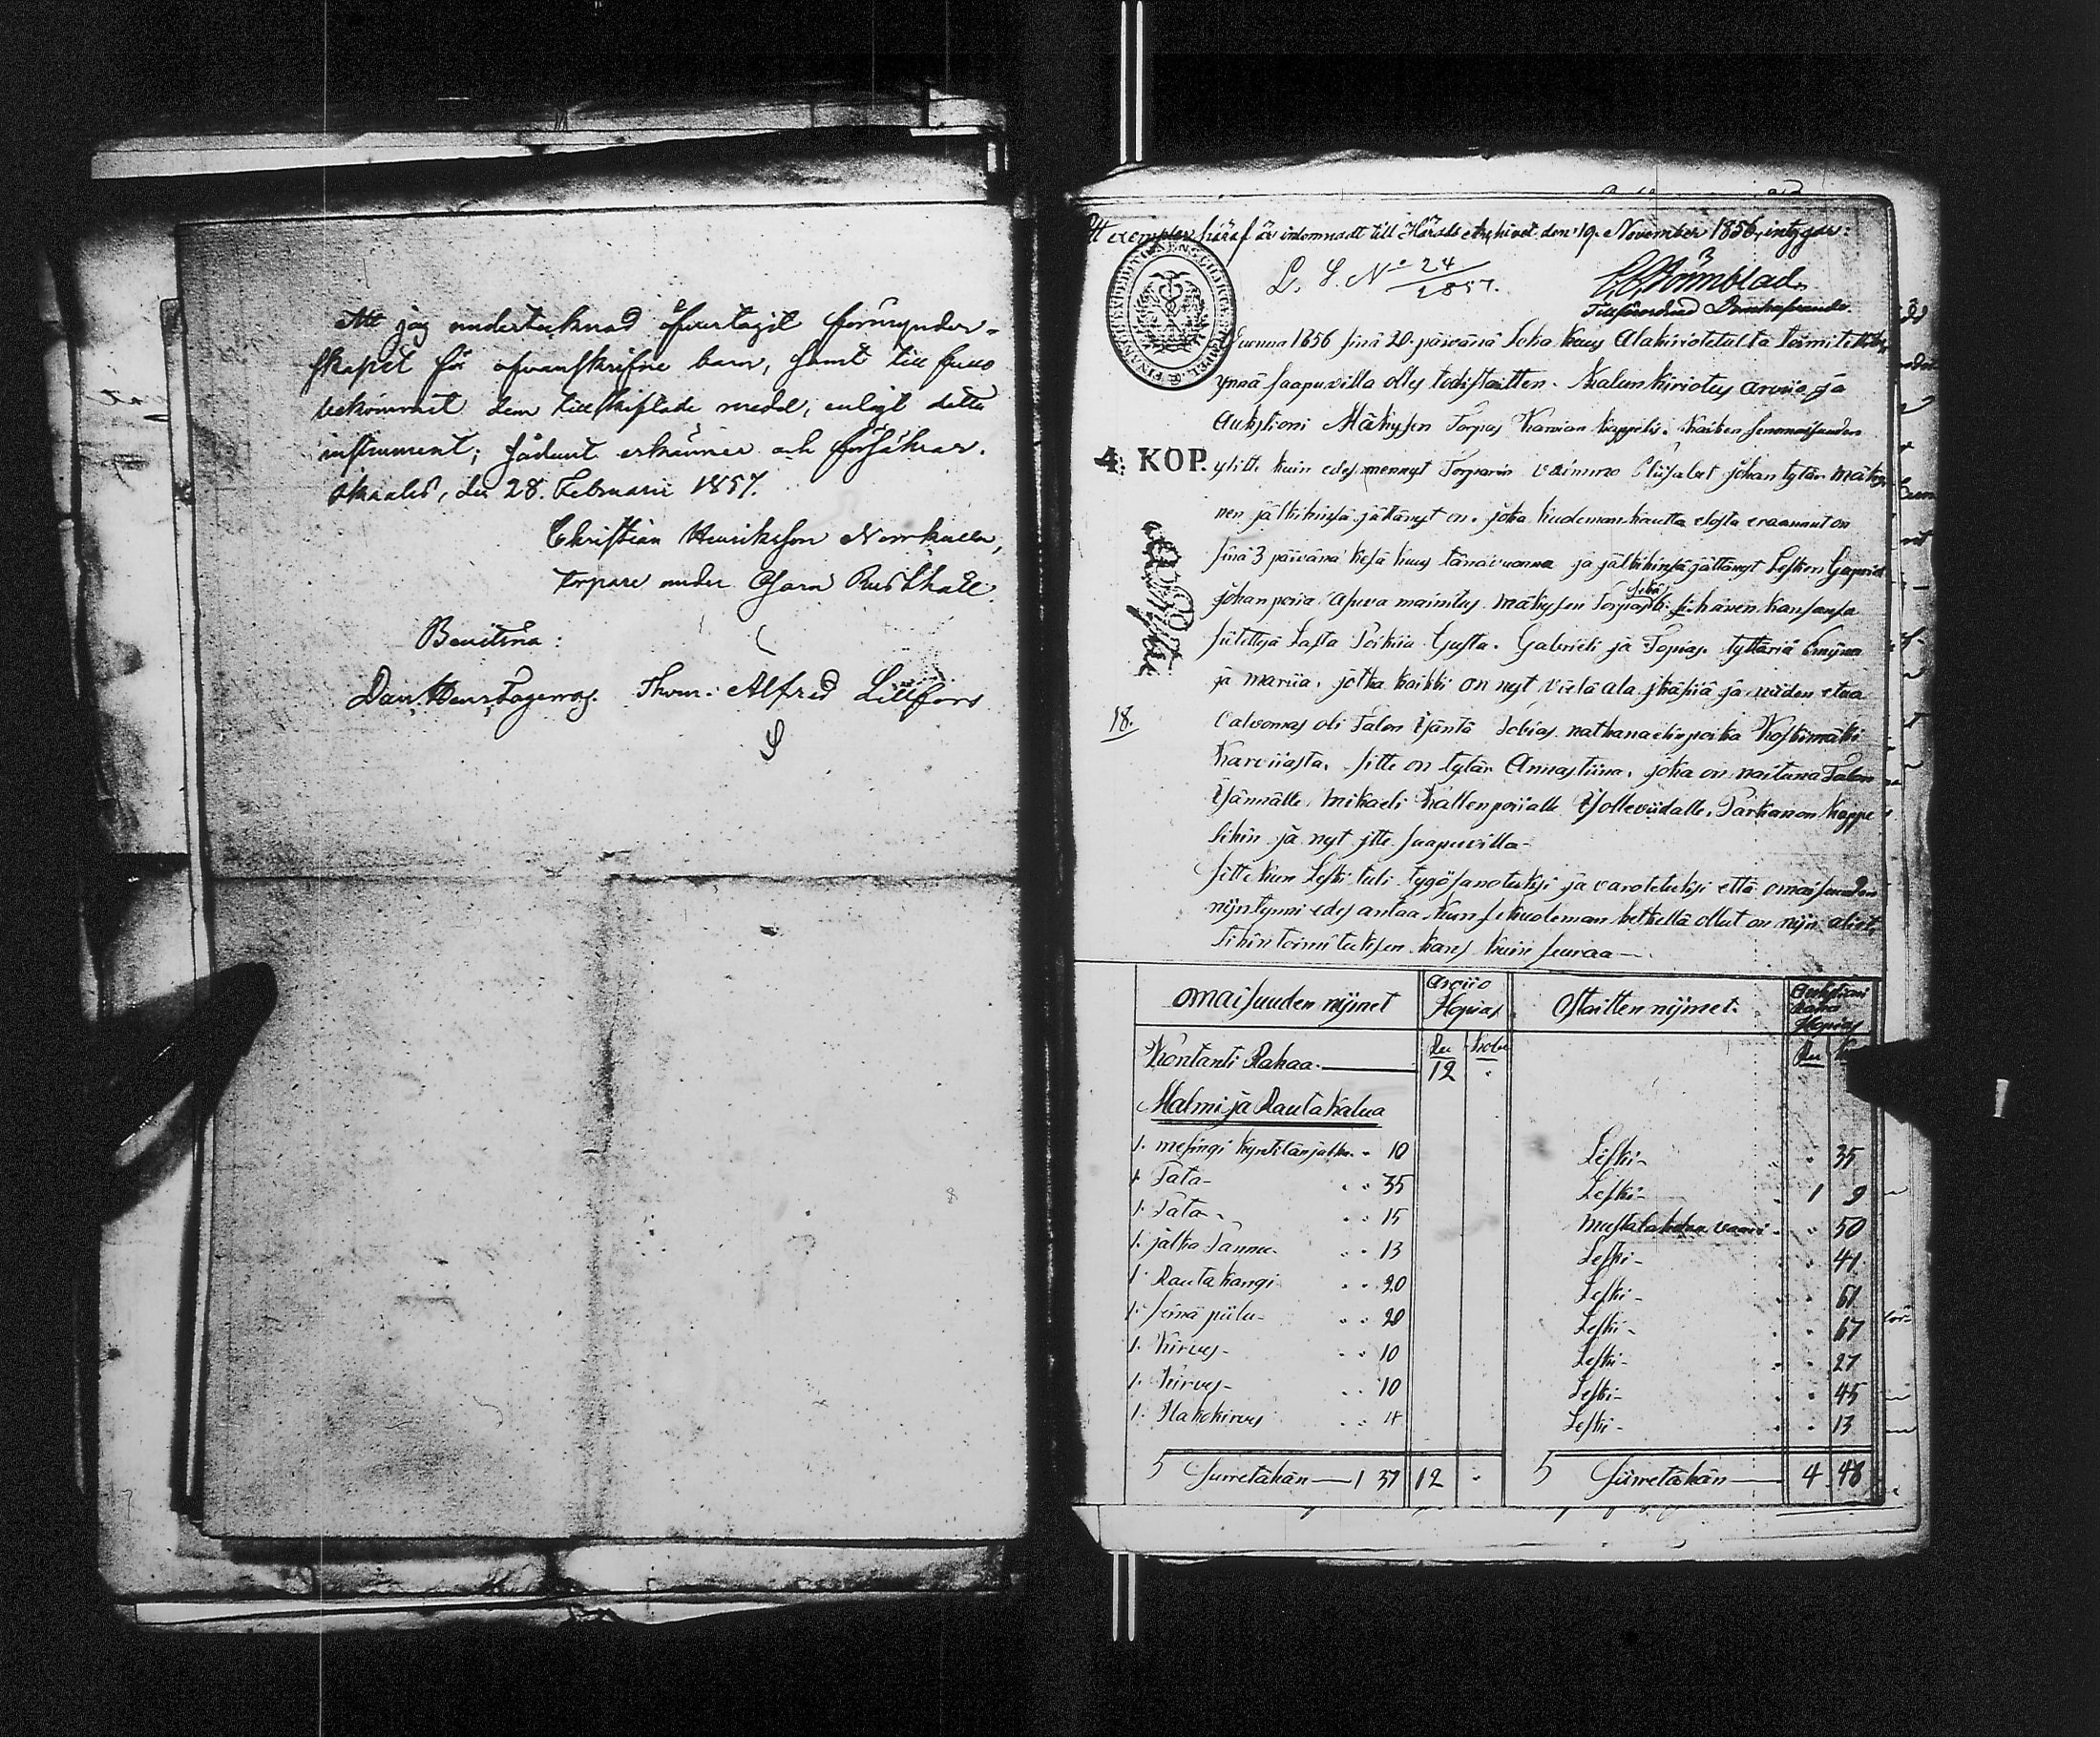 Att jag undertecknad öfvertagit förmynder-
skapet för ofvanskrifne barn, samt till fullo
bekommit dem tillskiftade medel, enligt detta
instrument; sådant erkänner och försäkrar.
Ikalis, den 28. Februarii 1857.
Christian Henriksson Norrkulla,
torpare under Osara Rusthåll.
Bevittna:
Dan. Henr. Fagerroos. Thom: Alfred Lillfors
Ett exemplar häraf är inlemnadt till Härads Archivet den 19. November 1856, intygar:
L. S. No 24/1857.
C. G. Rönnblad
Tillförordnad
Vuonna 1856 sinä 20. päivänä Loka kuus Alakiriotetulta toimitettiin,
ynnä saapuvilla olles todistaitten. Kalun kirioitus arvio, ja
Auktsioni Mäkysen Torpas Karvian kappelis. Kaiken sen omaisuuden
4. KOP. ylitte kuin edesmennyt Torparin vaimmo Liisabet Johan tytär Mäky-
nen jälkihinsä jättänyt on. joka kuoleman kautta elosta eraannut on
sinä 3 päivänä kesä kuus tänävuonna ja jälkihinsä jättänyt Lesken Gaprieli
Johan poiia asuva mainitus Mäkysen Torpas sekä hänen kansansa
siitettyjä Lasta Poikiia Gusta. Gabrieli ja Topias. tyttäriä Emiina
ja mariia. jotka kaikki on nyt vielä ala jkäsiä ja niiden etua
18. valvomas oli Talon Jsäntä Tobias nathanaelin poika Koskimäki
Karviiasta. sitte on tytär Annastiina. joka on naituna Talon
Jsännälle Mikaeli Kallenpoiialle Yolleviidalle. Parkanon kappe
lihin ja nyt itte saapuvilla-
sitte kun Leski tuli tygösanotuksi ja varotetuksi että omaisuuden
niin tynni edes antaa kun se kuoleman hetkellä ollut on niin
toimituksen kans kuin seuraa-
omaisuuden nimet | Arvio Hopias | Ostaitten nimet. | Auktsioni raha Hopias
Ru | kop | Ru
Kontanti Rahaa. 12 "
Malmi ja Rauta kalua
1. mesingi kynttilän jalka. " 10 Leski- " 35
1. Pata- " 35 Leski- 1 9
1. Pata- " 15 vaari " 50
1. jalka Pannu- " 13 Leski- " 41
1. Rauta kangi " 20 Leski- " 61
1. seinä piilu- " 20 Leski- " 67
1. Kirves- " 10 Leski- " 27
1. Kirves- " 10 Leski- " 45
1. Hakokirves " 4 Leski- " 13
5 Siirretähän 1 37 12 " 5 Siirretähän 4 48